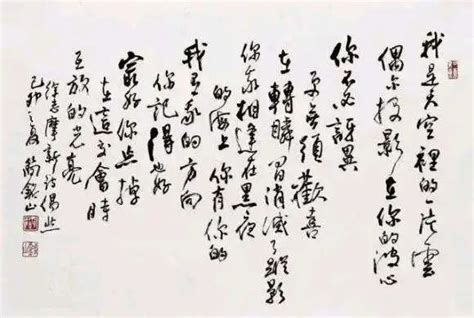 我是天空裡的一片雲
偶尔投影在你的波心
你不必訝異
更無須歡喜
在轉瞬間消滅了蹤影
你我相逢在黑夜
的海上你有你的
我有我的方向
你記得也好
最好你忘掉
在這交會時
互放的光亮
徐志摩新詩偶然
己卯之夏簡銘山